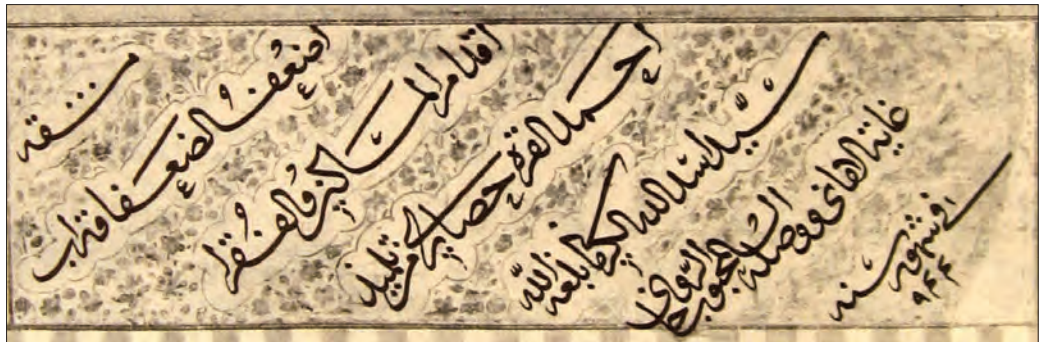 مشقه
اضعف الضعفا و تراب
اقدام المساكين و الفقرا
احمد القره حصارى من تلاميذ
سيد اسد الله الكرمانى بلغه الله
غاية الامانى و وصله
المحبوب الروحانى
فى شهور سنه
۹۴۴